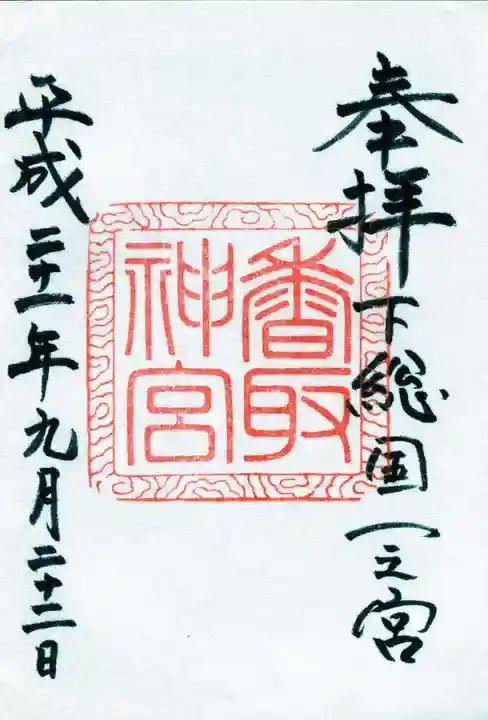 奉拝 下総国一之宮
香取
神宮
平成二十一年九月二十二日